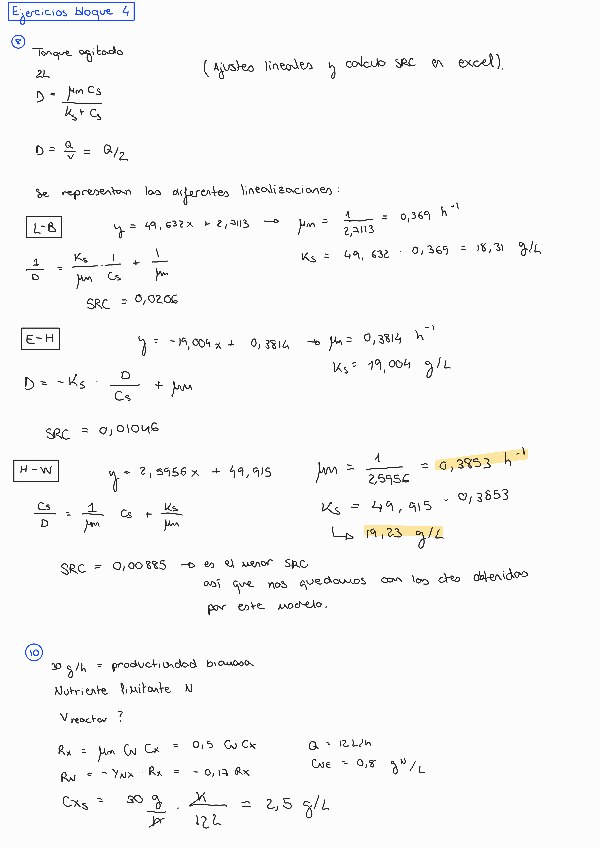 Ejercicios bloque 4
8
Tanque agitado
(Ajustes lineales y calculo SRC en excel).
2L
D = μm Cs / Ks + Cs
D = Q/V = Q/2
Se representan las diferentes linealizaciones:
L-B y = 49,632x + 2,7113 → μm = 1/2,7113 = 0,369 h⁻¹
1/D = Ks/μm · 1/Cs + 1/μm Ks = 49,632 · 0,369 = 18,31 g/L
SRC = 0,0206
E-H y = -19,004x + 0,3814 → μm = 0,3814 h⁻¹
Ks = 19,004 g/L
D = -Ks · D/Cs + μm
SRC = 0,01046
H-W y = 2,5956x + 49,915 μm = 1/2,5956 = 0,3853 h⁻¹
Cs/D = 1/μm Cs + Ks/μm Ks = 49,915 · 0,3853
↳ 19,23 g/L
SRC = 0,00885 → es el menor SRC
así que nos quedamos con las ctes obtenidas
por este modelo.
10
30 g/h = productividad biomasa
Nutriente limitante N
V reactor ?
Rx = μm CN Cx = 0,5 CN Cx Q = 12 L/h
RN = -YNX · Rx = -0,17 Rx CNE = 0,8 gN/L
Cxs = 30 g/h · h/12L = 2,5 g/L